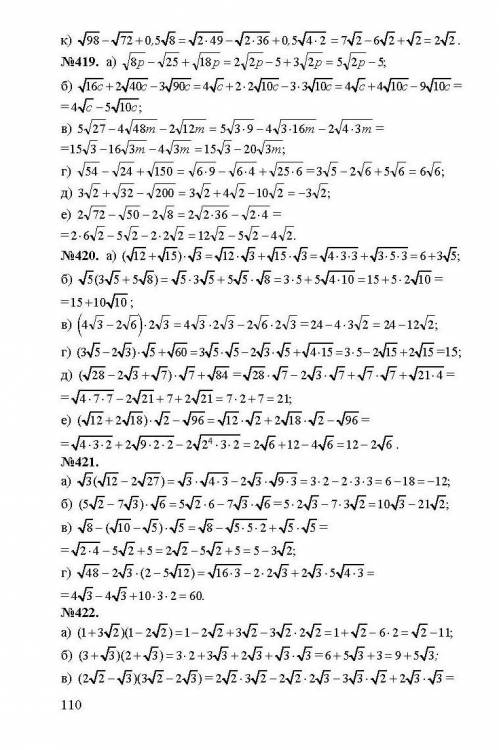 к) √98 − √72 + 0,5√8 = √(2·49) − √(2·36) + 0,5√(4·2) = 7√2 − 6√2 + √2 = 2√2.
№419. а) √(8p) − √25 + √(18p) = 2√(2p) − 5 + 3√(2p) = 5√(2p) − 5;
б) √(16c) + 2√(40c) − 3√(90c) = 4√c + 2·2√(10c) − 3·3√(10c) = 4√c + 4√(10c) − 9√(10c) =
= 4√c − 5√(10c);
в) 5√27 − 4√(48m) − 2√(12m) = 5√(3·9) − 4√(3·16m) − 2√(4·3m) =
=15√3 − 16√(3m) − 4√(3m) = 15√3 − 20√(3m);
г) √54 − √24 + √150 = √(6·9) − √(6·4) + √(25·6) = 3√6 − 2√6 + 5√6 = 6√6;
д) 3√2 + √32 − √200 = 3√2 + 4√2 − 10√2 = −3√2;
е) 2√72 − √50 − 2√8 = 2√(2·36) − √(2·4) =
= 2·6√2 − 5√2 − 2·2√2 = 12√2 − 5√2 − 4√2.
№420. а) (√12 + √15)·√3 = √12·√3 + √15·√3 = √(4·3·3) + √(3·5·3) = 6 + 3√5;
б) √5(3√5 + 5√8) = √5·3√5 + 5√5·√8 = 3·5 + 5√(4·10) = 15 + 5·2√10 =
=15 + 10√10;
в) (4√3 − 2√6)·2√3 = 4√3·2√3 − 2√6·2√3 = 24 − 4·3√2 = 24 − 12√2;
г) (3√5 − 2√3)·√5 + √60 = 3√5·√5 − 2√3·√5 + √(4·15) = 3·5 − 2√15 + 2√15 =15;
д) (√28 − 2√3 + √7)·√7 + √84 = √28·√7 − 2√3·√7 + √7·√7 + √(21·4) =
= √(4·7·7) − 2√21 + 7 + 2√21 = 7·2 + 7 = 21;
е) (√12 + 2√18)·√2 − √96 = √12·√2 + 2√18·√2 − √96 =
= √(4·3·2) + 2√(9·2·2) − 2√(2⁴·3·2) = 2√6 + 12 − 4√6 = 12 − 2√6.
№421.
а) √3(√12 − 2√27) = √3·√(4·3) − 2√3·√(9·3) = 3·2 − 2·3·3 = 6 − 18 = −12;
б) (5√2 − 7√3)·√6 = 5√2·6 − 7√3·√6 = 5·2√3 − 7·3√2 = 10√3 − 21√2;
в) √8 − (√10 − √5)·√5 = √8 − √(5·5·2) + √5·√5 =
= √(2·4) − 5√2 + 5 = 2√2 − 5√2 + 5 = 5 − 3√2;
г) √48 − 2√3·(2 − 5√12) = √(16·3) − 2·2√3 + 2√3·5√(4·3) =
= 4√3 − 4√3 + 10·3·2 = 60.
№422.
а) (1 + 3√2)(1 − 2√2) = 1 − 2√2 + 3√2 − 3√2·2√2 = 1 + √2 − 6·2 = √2 − 11;
б) (3 + √3)(2 + √3) = 3·2 + 3√3 + 2√3 + √3·√3 = 6 + 5√3 + 3 = 9 + 5√3;
в) (2√2 − √3)(3√2 − 2√3) = 2√2·3√2 − 2√2·2√3 − 3√3·√2 + 2√3·√3 =
110